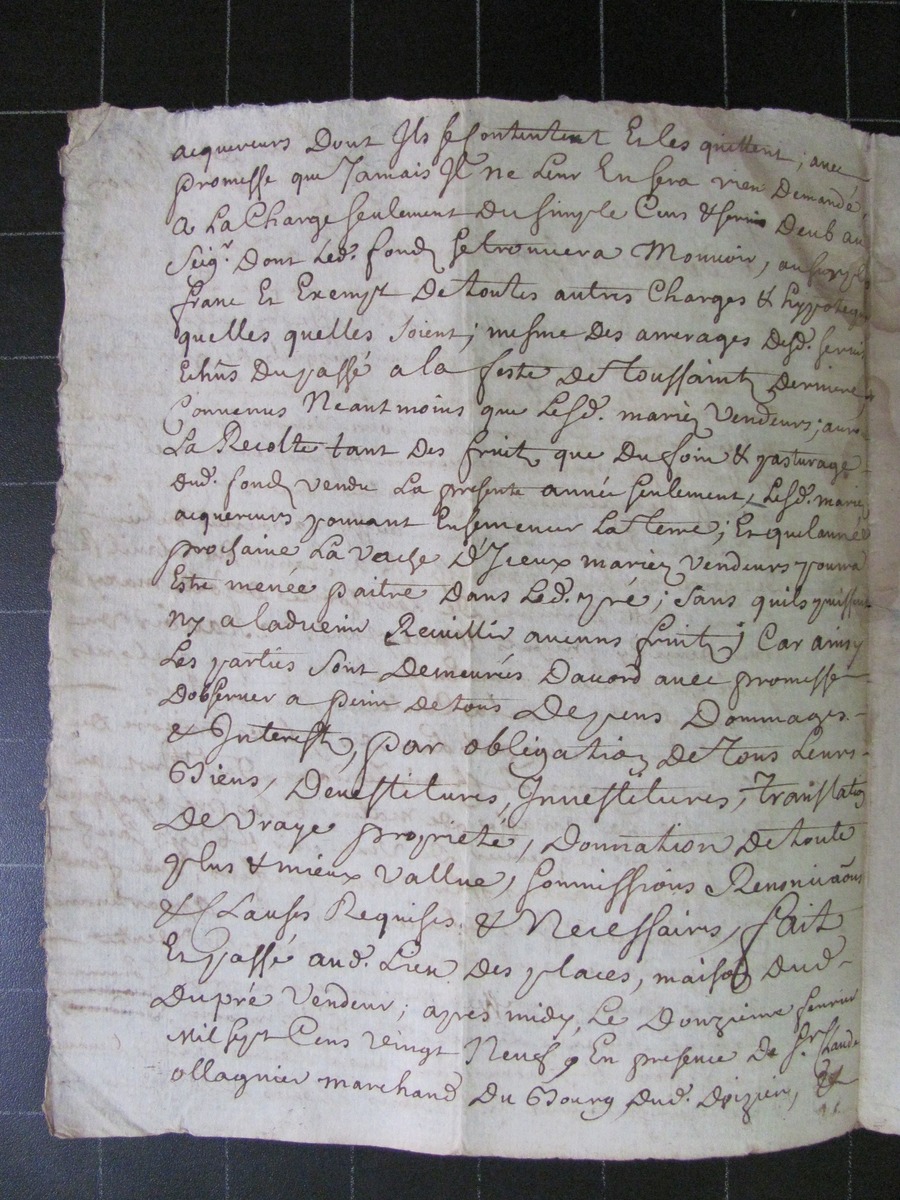 acquereurs Dont Ils se Contentent Et les quittent ; avec
promesse que Jamais Il ne Leur En sera rien Demandé,
A La Charge seulement Du simple Cens & servis Deub au
Seigr. Dont Led. fondz se trouvera Mouvoir, au surplus
franc Et Exempt De toutes autres Charges & hypoteques
quelles quelles soient ; mesme Des arrerages Desd. servis
Echus Du passé a la feste De toussaintz Derniere,
Convenus Neantmoins que Lesd. mariez Vendeurs ; auront
La Recolte tant Des fruitz que Du foin & pasturage
Dud. fondz vendu La presente année seulement, Lesd. mariez
acquereurs pouvant Ensemencer La Terre ; Et que lannée
prochaine La vache D'Iceux mariez vendeurs pourra
Estre menée paitre Dans Led. pré ; sans quils puissent
Ny a laduenir Reuillir aucuns fruitz ; Car ainsy
Les parties sont Demeurés Dacord avec promesse
Dobserver a peine de tous Depens Dommages
& Interestz, par obligation De Tous Leurs
Biens, Devestitures, Investitures, Translation
De Vraye proprieté, Donnation De toute
plus & mieux vallue, sommissions Renonciaõns
& Clauses Requises & Necessaires, fait
Et passé aud. Lieu Des places, maison Dud.
Dupré Vendeur ; apres midy, Le Douzieme fevrier
Mil sept Cens Vingt Neuf, En presence De Sr. Claude
ollagnier marchand Du Bourg Dud. Doizieu, Et